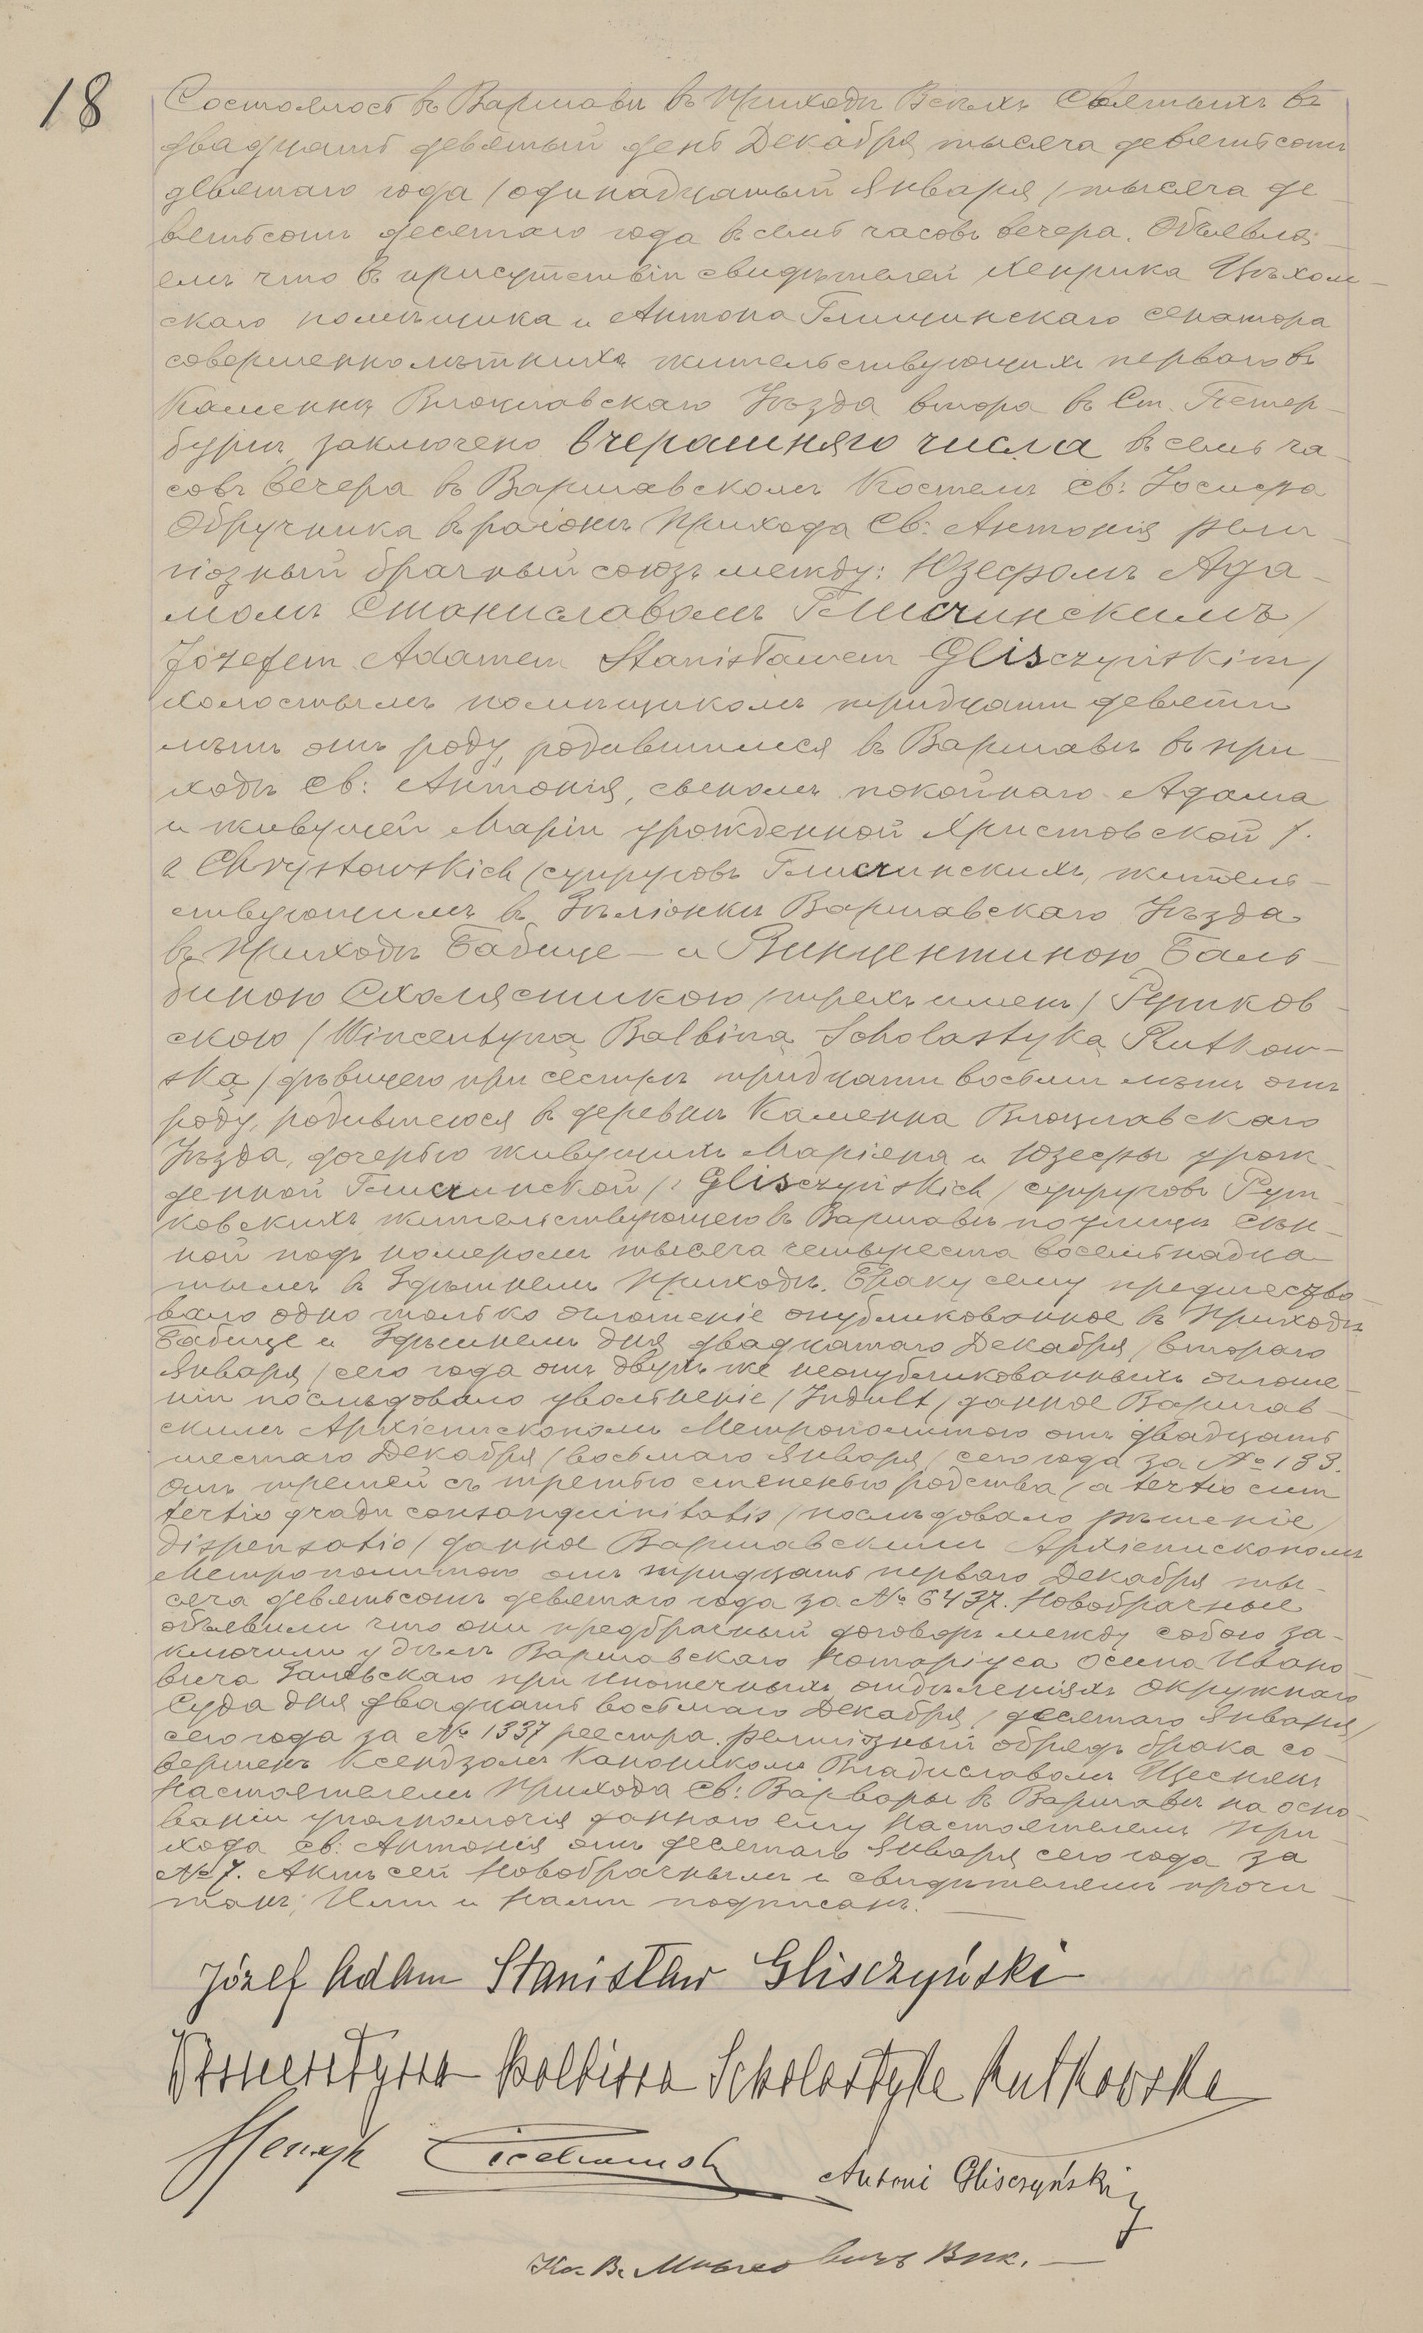 18
Состоялось въ Варшавѣ въ Приходѣ Всѣхъ Святыхъ въ
двадцать девятый день Декабря тысяча девятьсотъ
девятаго года / одинадцатый Января / тысяча де-
вятьсотъ десятаго года въ семь часовъ вечера. Объявля-
емъ что въ присутствіи свидѣтелей Хенрика Цѣхом-
скаго помѣщика и Антона Глищинскаго сенатора
совершеннолѣтнихъ жительствующихъ перваго въ
Каменнѣ Влоцлавскаго Уѣзда втора въ Ст. Петер-
бургѣ, заключено вчерашняго числа въ семь ча-
совъ вечера въ Варшавскомъ Костелѣ Св: Іосифа
Обручника въ раіонѣ Прихода Св: Антонія рели-
гіозный брачный союзъ между: Юзефомъ Ада-
момъ Станиславомъ Глисчинскимъ /
Józefem Adamem Stanisławem Glisczyńskim /
холостымъ помѣщикомъ тридцати девяти
лѣтъ отъ роду, родившимся въ Варшавѣ въ при-
ходѣ Св: Антонія, сыномъ покойнаго Адама
и живущей Маріи урожденной Христовской /.
z Chrystowskich / супруговъ Глисчинскихъ, житель-
ствующимъ въ Зѣліонкѣ Варшавскаго Уѣзда
въ Приходѣ Бабице — и Винцентиною Баль-
биною Схолястикою / трехъ именъ / Рутков-
скою / Wincentyną Balbiną Scholastyką Rutkow-
ską / дѣвицею при сестрѣ тридцати восьми лѣтъ отъ
роду, родившеюся въ деревнѣ Каменна Влоцлавскаго
Уѣзда, дочерью живущихъ Маріяна и Юзефы урож-
денной Глисчинской / z Glisczyńskich / супруговъ Рут-
ковскихъ жительствующею въ Варшавѣ по улицѣ Сѣн-
ной подъ номеромъ тысяча четыреста восемьнадца-
тымъ въ Здѣшнемъ Приходѣ. Браку сему предшество-
вало одно только оглашеніе опубликованное въ Приходѣ
Бабице и Здѣшнемъ дня двадцатаго Декабря / втораго
Января / сего года отъ двухъ же неопубликованныхъ оглаше-
ніи послѣдовало увольненіе / Indult / данное Варшав-
скимъ Архіепископомъ Митрополитомъ отъ двадцать
шестаго Декабря / восьмаго Января / сего года за № 133.
Отъ третьей съ третью степенью родства / a tertio cum
tertio gradu consanguinitatis / послѣдовало рѣшеніе /
dispensatio / данное Варшавскимъ Архіепископомъ
Митрополитомъ отъ тридцать перваго Декабря ты-
сяча девятьсотъ девятаго года за № 6437. Новобрачные
объявили что они предбрачный договоръ между собою за-
ключили у дѣлъ Варшавскаго Нотаріуса Осипа Ивано-
вича при Ипотечныхъ отдѣленіяхъ Окружнаго
Суда дня двадцать восьмаго Декабря / десятаго Января /
сего года за № 1337 реестра. Религіозный обрядъ брака со-
вершенъ Ксендзомъ Каноникомъ Владиславомъ Щеснякъ
Настоятелемъ Прихода Св: Варвары въ Варшавѣ на осно-
ваніи уполномочія даннаго ему Настоятелемъ При-
хода Св: Антонія отъ десятаго Января сего года за
№ 7. Актъ сей Новобрачнымъ и свидѣтелямъ прочи-
танъ, Ими и Нами подписанъ. —
Józef Adam Stanisław Glisczyński
Wincentyna Balbina Scholastyka Rutkowska
Henryk Ciechomski
Antoni Glisczyński
Кс. В. Вик. —